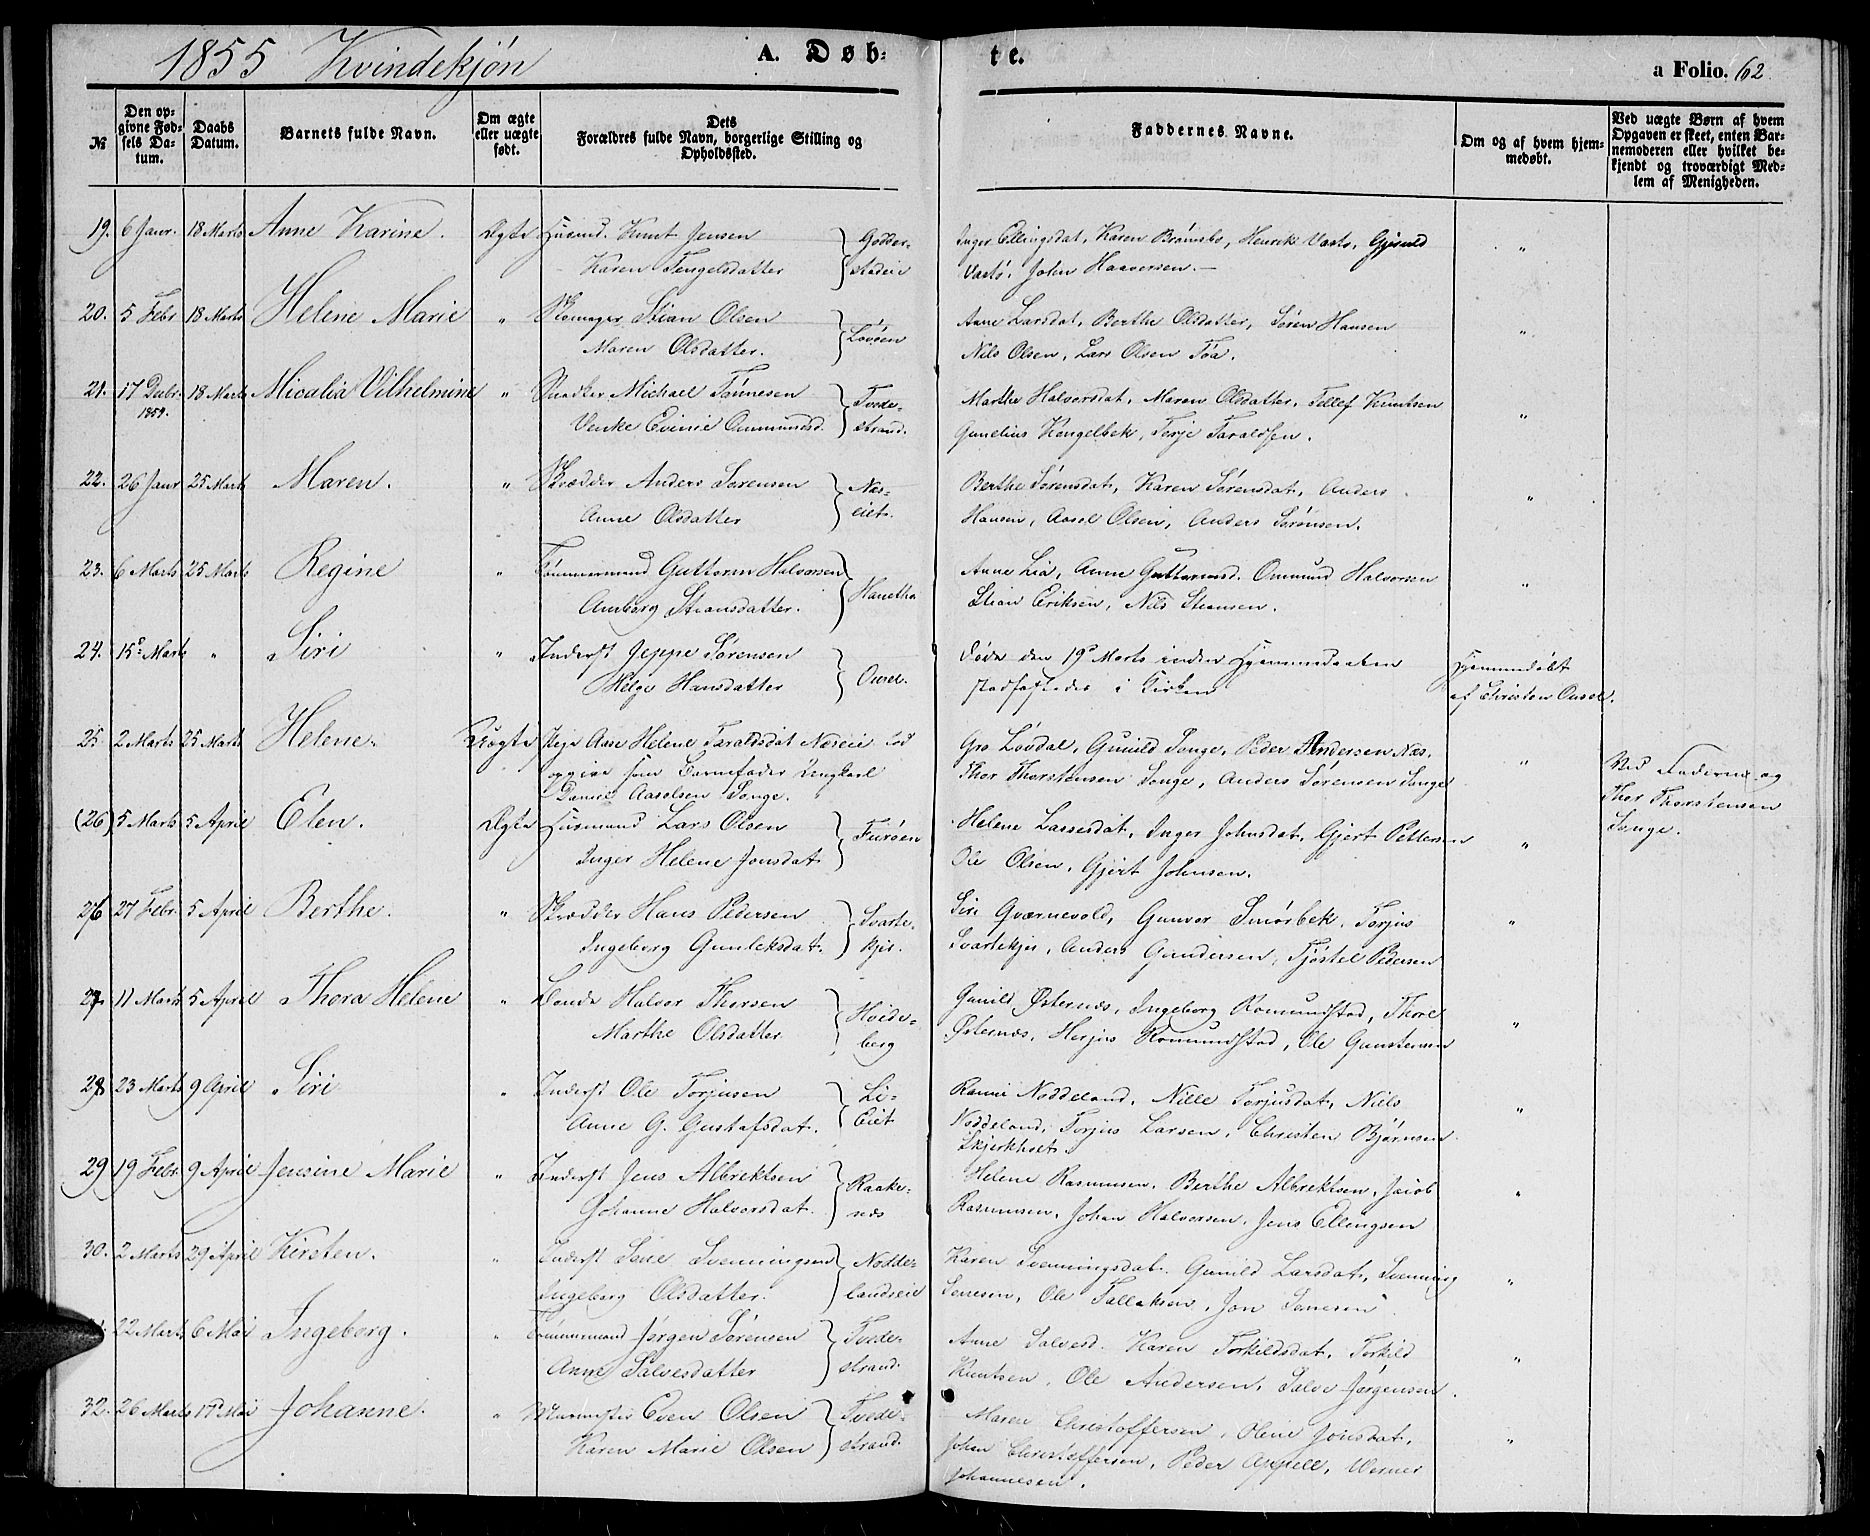 1855 Kvindekjön
A. Døb-
te.
a Folio. 62
№
Den op-
givne Fød-
sels Da-
tum.
Daabs
Datum.
Barnets fulde Navn.
Om ægte
eller uægte
født.
Dets
Forældres fulde Navn, borgerlige Stilling og
Opholdssted.
Faddernes Navne.
Om og af hvem hjem-
medøbt.
Ved uægte Børn af hvem
Opgaven er skeet, enten Bar-
nemoderen eller hvilket be-
kjendt og troværdigt Med-
lem af Menigheden.
19. 6 Janr. 18 Marts Anne Karine. Ægte Husmd. Knut Jensen
Karen Tengelsdatter
Inger Ellingsdat, Karen Brømsbo, Henrik Vastø,
Vastø, John Haaversen.
20. 5 Febr 18 Marts Helene Marie " Skomager Stian Olsen
Maren Olsdatter. Lövsen
Anne Larsdat, Berthe Olsdatter, Søren Hansen
Nils Olsen, Lars Olsen Töa.
"
21. 17 Decbr. 18 Marts Micalia Vilhelmine " Snedker Michael Tönnesen
1854.
Venke Evinie Ommundsd. Tvede-
strand.
Marthe Halvorsdat, Maren Olsdatter, Tellef Knutsen
Gunelius Kengelbek, Terje Taraldsen.
"
22. 26 Janr 25 Marts Maren. " Skrædder Anders Sørensen
Anne Olsdatter Næs-
eiet.
Berthe Sørensdat, Karen Sørensdat, Anders
Hansen, Aasel Olsen, Anders Sørensen.
"
23. 6 Marts 25 Marts Regine " Tömmermand Guttorm Halvorsen
Anborg Stiansdatter.
Anne Lia, Anne Guttormsd. Ommund Halvorsen
Stian Eriksen, Nils Stiansen.
"
24. 15de Marts " Siri " Inderst Jeppe Sørensen
Helge Hansdatter
Døde den 19de Marts inden Hjemmedaaben
stadfæstedes i Kirken
Hjemmedöbt
af Christen
25 2 Marts 25 Marts Helene. Uægte Pige Aase Helene Taraldsdat Næseie lod
opgive som Barnefader Ungkarl
Daniel Aasolsen Songe.
Gro Lövdal, Gunild Songe, Peder Andersen Næs.
Thor Thorstensen Songe, Anders Sørensen Songe
"
Ved Faderne og
Thor Thorstensen
Songe.
(26) 5 Marts 5 April Elen. Ægte Husmand Lars Olsen
Inger Helene Jonsdat. Furöen
Helene Lassesdat, Inger Johnsdat, Gjert Pettersen
Ole Olsen, Gjert Johnsen.
"
26 27 Febr. 5 April Berthe. " Skrædder Hans Pedersen
Ingeborg Gunleksdat. Svarte-
kjer.
Siri Qværnevold, Gunvor Smörbek, Torjus
Svartekjer, Anders Gundersen, Tjöstel Pedersen
"
27 11 Marts 5 April Thora Helene " Bonde Halvor Thorsen
Marthe Olsdatter Hvide-
berg
Gunild Østernæs, Ingeborg Romundstad, Thore
Østernæs, Herjus Romundstad, Ole Gunstensen
"
28 23 Marts 9 April Siri " Inderst Ole Torjusen
Anne G. Gustafsdat. Li-
Eiet
Ranni Noddeland, Nille Torjusdat, Niels
Noddeland, Torjus Larsen, Christen Bjørnsen
Skjerkholt.
"
29 19 Febr. 9 April Jensine Marie " Inderst Jens Albrektsen
Johanne Halvorsdat. Raake-
næs
Helene Rasmusen, Berthe Albrektsen, Jacob
Rasmusen, Johan Halvorsen, Jens Ellingsen
"
30. 2 Marts 29 April Kirsten. " Inderst Svenningsen
Ingeborg Olsdatter. Nodde-
landseie
Karen Svenningsdat. Gunild Larsdat, Svenning
Ole Tallaksen, Jon
"
22 Marts 6 Mai Ingeborg. " Tömmermand Jørgen Sørensen
Anne Salvesdatter Tvede-
strand.
Anne Salvesd. Karen Torkildsdat, Torkild
Knutsen, Ole Andersen, Salve Jørgensen.
"
32. 26 Marts 17 Mai Johanne. " Murmester Even Olsen
Karen Marie Olsen Tvede-
strand.
Maren Christoffersen, Oline Jonsdat,
Johan Christoffersen, Peder Appell, Werner
Johannesen.
"